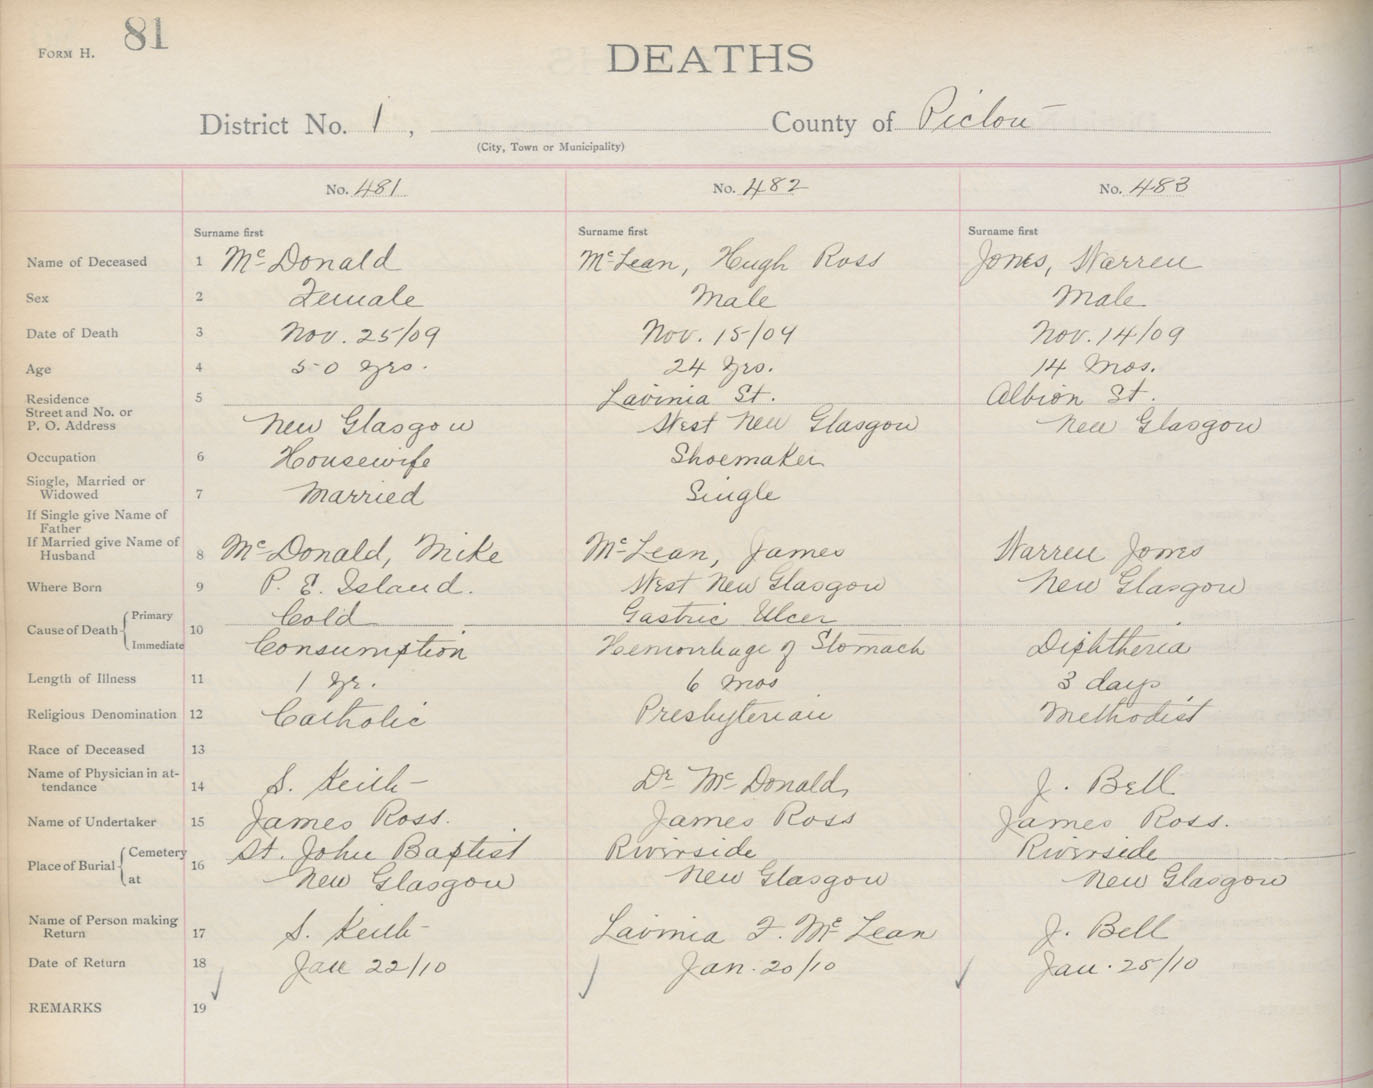 FORM H.
81
DEATHS
District No. 1, County of Pictou
(City, Town or Municipality)
No. 481 No. 482 No. 483
Surname first Surname first Surname first
Name of Deceased 1 McDonald McLean, Hugh Ross Jones, Warren
Sex 2 Female Male Male
Date of Death 3 Nov. 25/09 Nov. 15/09 Nov. 14/09
Age 4 50 yrs. 24 yrs. 14 mos.
Residence 5 Lavinia St. Albion St.
Street and No. or
P. O. Address New Glasgow West New Glasgow New Glasgow
Occupation 6 Housewife Shoemaker
Single, Married or
Widowed 7 Married Single
If Single give Name of
Father
If Married give Name of
Husband 8 McDonald, Mike McLean, James Warren Jones
Where Born 9 P. E. Island. West New Glasgow New Glasgow
Cause of Death Primary 10 Cold Gastric Ulcer
Immediate Consumption Hemorrhage of Stomach Diphtheria
Length of Illness 11 1 yr. 6 mos 3 days
Religious Denomination 12 Catholic Presbyterian Methodist
Race of Deceased 13
Name of Physician in at-
tendance 14 S. Keith Dr McDonald, J. Bell
Name of Undertaker 15 James Ross. James Ross James Ross.
Place of Burial Cemetery 16 St. John Baptist Riverside Riverside
at New Glasgow New Glasgow New Glasgow
Name of Person making
Return 17 S. Keith Lavinia F. McLean J. Bell
Date of Return 18 Jan 22/10 Jan. 20/10 Jan. 25/10
REMARKS 19